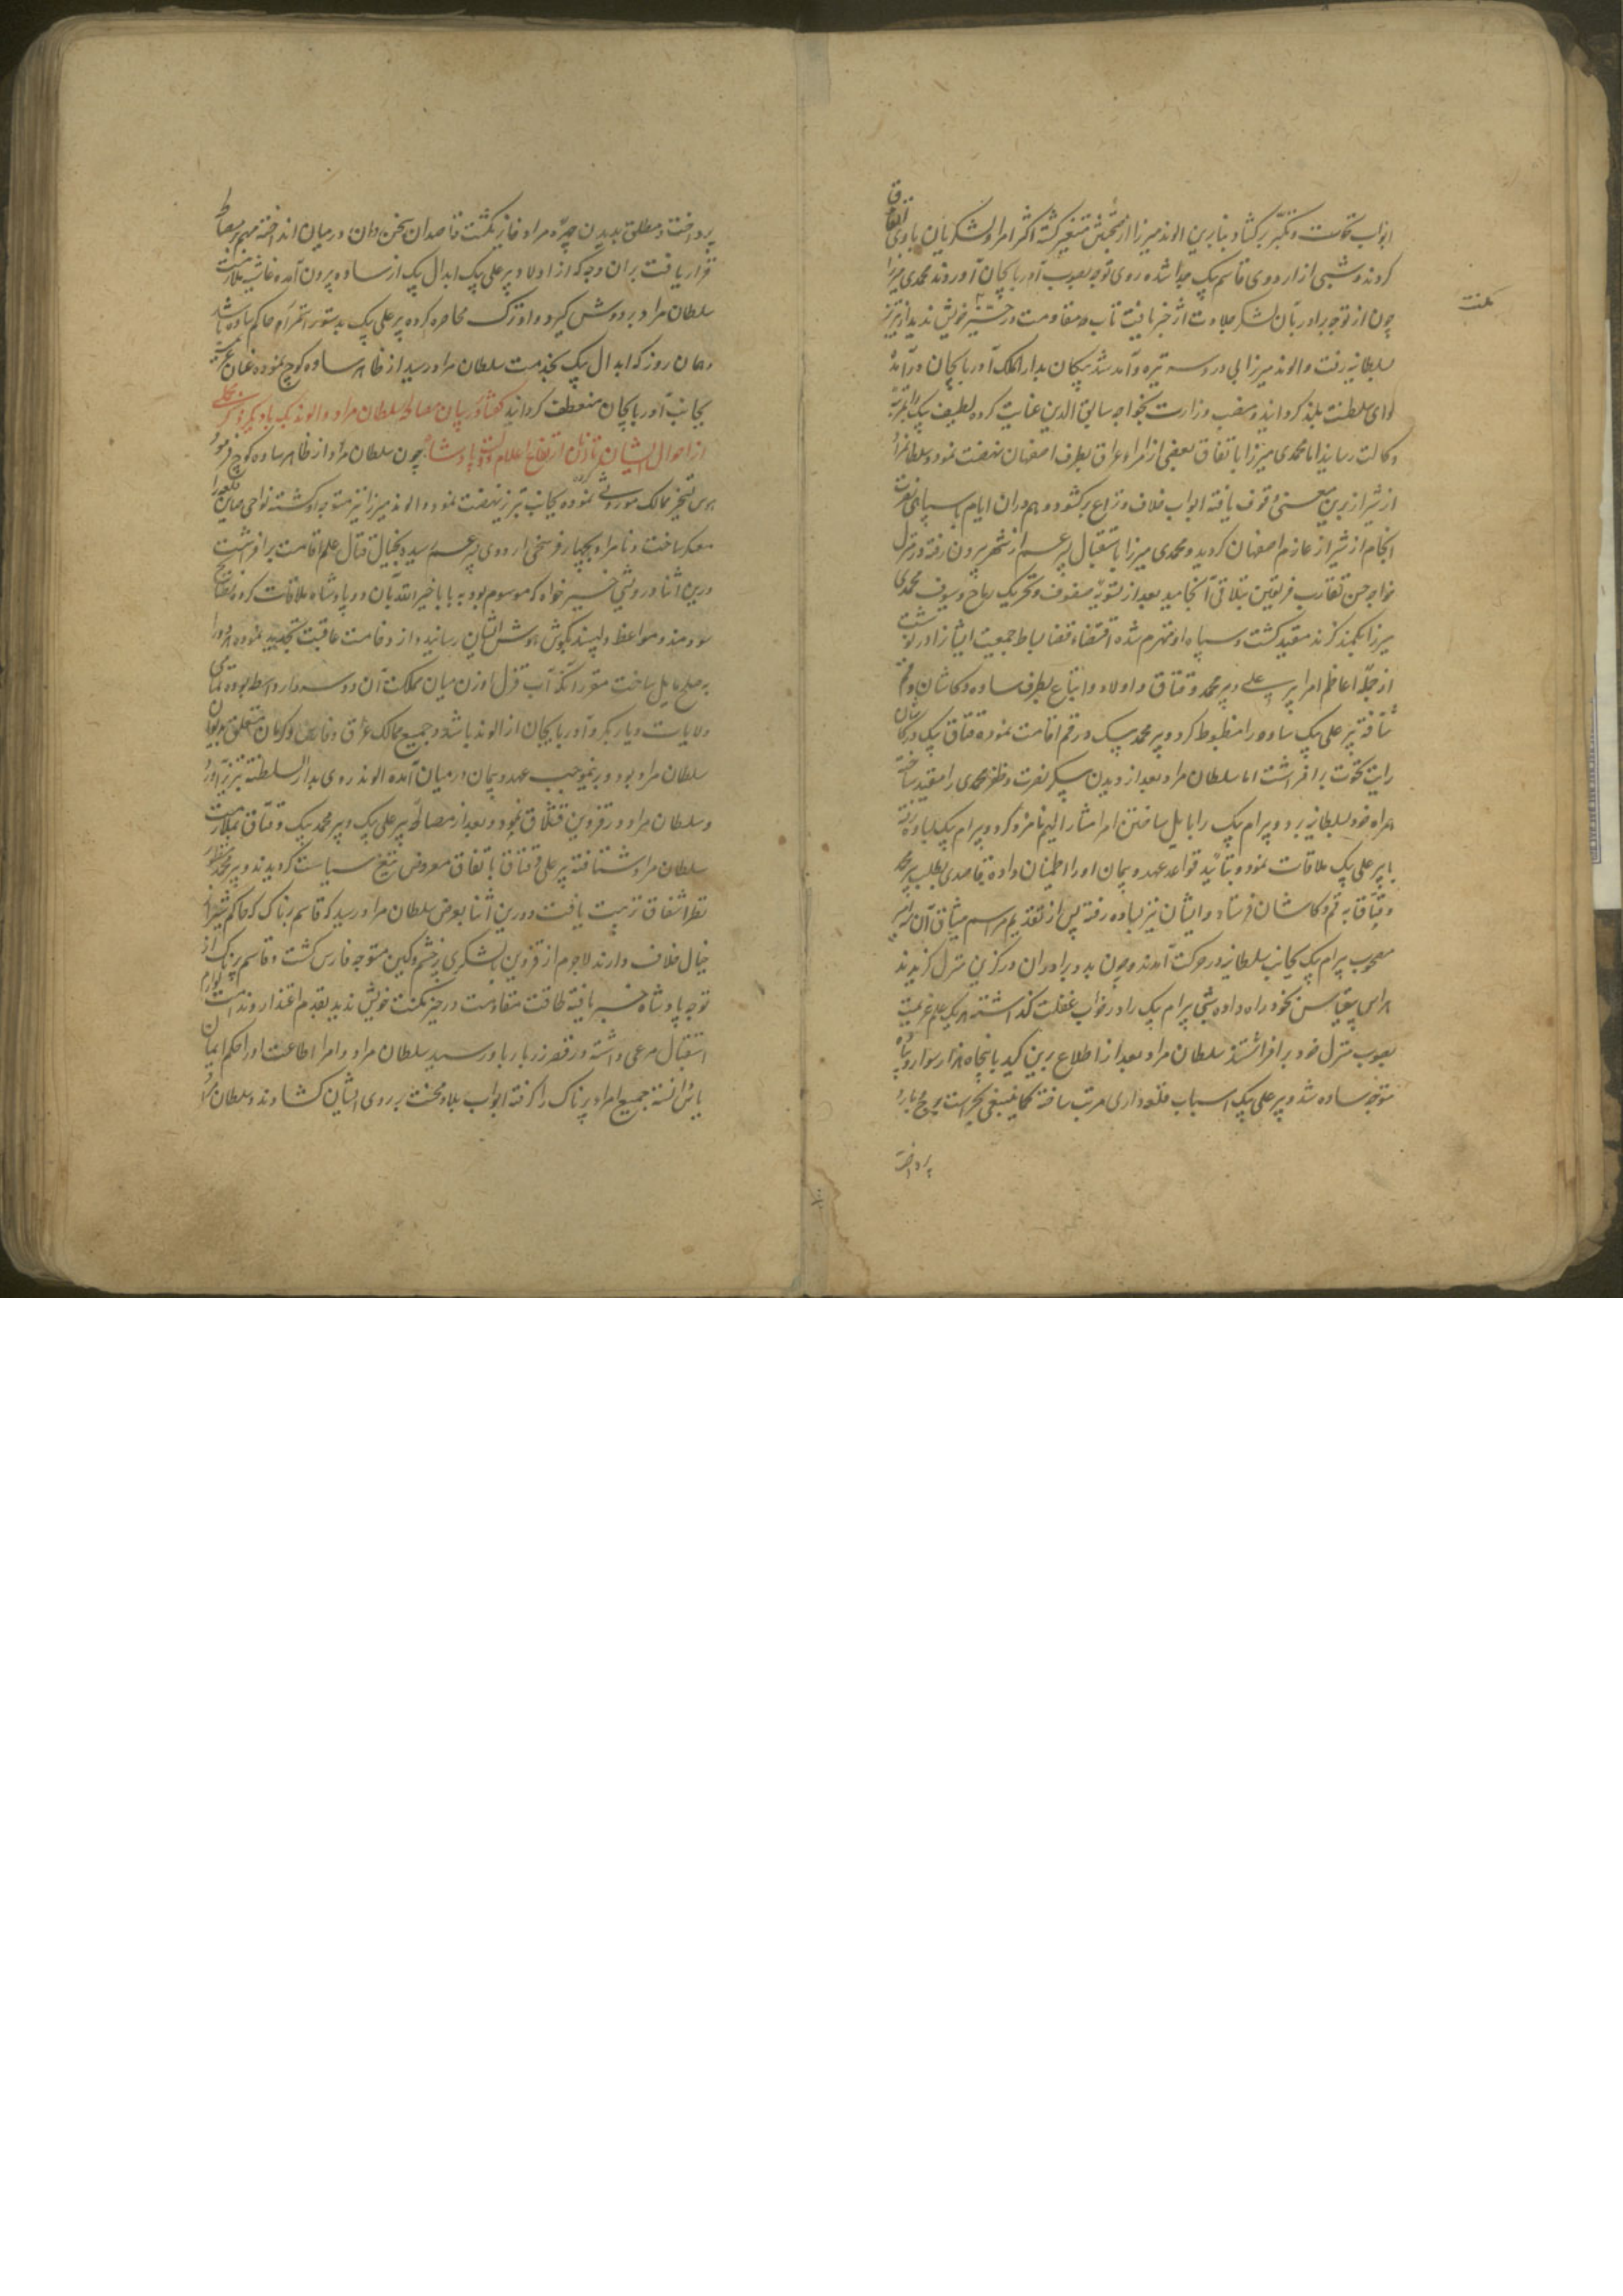 ابواب نخوت و تکبر برکشاد بنابرین الوند میرزا از صحبتش متنفر کشته اکثر امرا و لشکریان با وی اتفاق
کردند و شبی از اردوی قاسم بیک جدا شده روی توجه بصوب آذربایجان آوردند محمدی میرزا
چون از توجه برادر بآن لشکر جلادت اثر خبر یافت تاب مقاومت در حیز خویش ندید از تبریز
بسلطانیه رفت و الوند میرزا بی دردسر تیره و آمد شد پیکان بدار الملک آذربایجان درآمد
لوای سلطنت بلند کردانید و منصب وزارت بخواجه سابق الدین عنایت کرده لطیف بیک را بمرتبه
وکالت رسانید اما محمدی میرزا باتفاق بعضی از امراء عراق بطرف اصفهان نهضت نمود و سلطانمراد
از شیراز برین معنی وقوف یافته ابواب خلاف و نزاع برکشود و هم دران ایام با سپاهی نصرت
انجام از شیراز عازم اصفهان کردید و محمدی میرزا باستقبال پسر عم از شهر بیرون رفته در منزل
خواجه حسن تقارب فریقین بتلاقی انجامید بعد از تسویه صفوف و تحریک رماح و سیوف محمدی
میرزا بکمند کزند مقید کشت و سپاه او منهزم شده اقتضاء قضا بساط جمعیت ایشانرا درنوشت
از جمله اعاظم امرا پیر علی و پیر محمد و قتاق و اولاد و اتباع بطرف ساوه و کاشان و قم
شتافته پیر علی بیک ساوه را مضبوط کرد و پیر محمد بیک در قم اقامت نموده قتاق بیک در کاشان
رایت نخوت برافراشت اما سلطان مراد بعد از دیدن پیکر نصرت و ظفر محمدی را مقید ساخته
همراه خود بسلطانیه برد و بیرام بیک را بایل ساختن امراء مشار الیهم نامزد کرد و بیرام بیک بساوه رفته
با پیر علی بیک ملاقات نمود و بتأیید قواعد عهد و پیمان او را اطمینان داده قاصدی بطلب پیر محمد
و قتاق به قم و کاشان فرستاد و ایشان نیز بساوه رفته پس از تقدیم مراسم میثاق آن سه امیر
مصحوب بیرام بیک بجانب سلطانیه در حرکت آمدند و چون بدو برادران در کزین منزل کزیدند
هراس بیقیاس بخود راه داده شبی بیرام بیک را در خواب غفلت کذاشته هر یک علم عزیمت
بصوب منزل خود برافراشتند سلطان مراد بعد از اطلاع برین کید با پنجاه هزار سوار و پیاده
متوجه ساوه شد و پیر علی بیک اسباب قلعه داری مرتب ساخته کما ینبغی بحراست برج و باره
پرداخت
مکنت
پرداخت و مطلقا بدیدن چهره مراد فایز نکشت قاصدان سخن دان در میان انداخته مهم بر مصالحه
قرار یافت بران وجه که از اولاد پیر علی بیک ابدال بیک از ساوه بیرون آمده غاشیه ملازمت
سلطان مراد بر دوش کیرد و او ترک محاصره کرده پیر علی بیک بدستور استمرار حاکم ساوه باشد
و همان روز که ابدال بیک بخدمت سلطان مراد رسید از ظاهر ساوه کوچ نموده عنان عزیمت
بجانب آذربایجان منعطف کردانید کفتار در بیان مصالحه سلطان مراد و الوند بیک با یکدیکر و ذکر مجملی
از احوال ایشان تا زمان ارتفاع اعلام دولت پادشاه چون سلطان مراد از ظاهر ساوه کوچ فرمود
بهوس تسخیر ممالک موروثی نموده بجانب تبریز نهضت نمود و الوند میرزا نیز متوجه او کشته نواحی صاین قلعه را
معسکر ساخت و نامراد بچهار فرسخی اردوی پسر عم رسیده بخیال قتال علم اقامت برافراشت
درین اثنا درویشی خیر خواه که موسوم بود به بابا خیر الله بآن دو پادشاه ملاقات کرده نصایح
سودمند و مواعظ دلپسند بکوش هوش ایشان رسانید و از وخامت عاقبت تهدید نموده هر دو را
به صلح مایل ساخت مقرر آنکه آب قزل اوزن میان مملکت آن دو سردار واسطه بوده تمامی
ولایات دیار بکر و آذربایجان از الوند باشد و جمیع ممالک عراق و فارس و کرمان متعلق بدیوان
سلطان مراد بود و برینموجب عهد و پیمان در میان آمده الوند روی بدار السلطنه تبریز آورد
و سلطان مراد در قزوین قشلاق نمود و بعد از مصالحه پیر علی بیک و پیر محمد بیک و قتاق بملازمت
سلطان مراد شتافته پیر علی و قتاق باتفاق معروض تیغ سیاست کردیدند و پیر محمد منظور
نظر اشفاق تربیت یافت و درین اثنا بعرض سلطان مراد رسید که قاسم پرناک که حاکم شیراز
خیال خلاف دارند لاجرم از قزوین با لشکری پر خشم و کین متوجه فارس کشت و قاسم پرناک از
توجه پادشاه خبر یافته طاقت مقاومت در حیز مکنت خویش ندید بقدم اعتذار روند است لوازم
استقبال مرعی داشته در قصر زر بار باو رسید سلطان مراد و امرا اطاعت او را حکم ایمان
یأس دانسته جمیع امراء پرناک را کرفته ابواب بلا و محنت بر روی ایشان کشادند و سلطان مراد